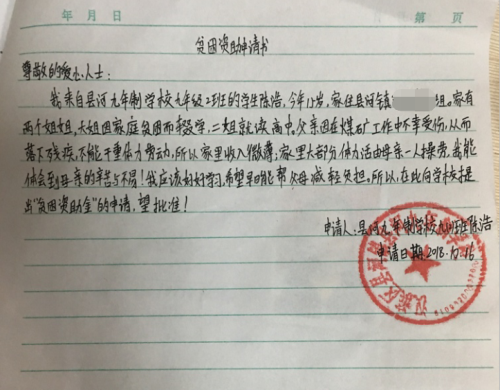 年 月 日 第 页
贫困资助申请书
尊敬的爱心人士：
我来自县河九年制学校九年级2班的学生陈浩，今年15岁，家住县河镇 组。家有
两个姐姐，大姐因家庭贫困而辍学，二姐就读高中，父亲因在煤矿工作中不幸受伤，从而
落下残疾，不能干重体力劳动，所以家里收入微薄，家里大部分体力活由母亲一人操劳，我能
体会到母亲的辛苦与不易！我应该好好学习，希望早日能帮父母减轻负担，所以，在此向学校提
出“贫困资助金”的申请，望批准！
申请人：县河九年制学校九(2)班陈浩
申请日期2018.12.16